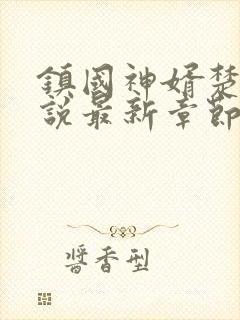 鎮國神婿楚
說最新章節
醬香型